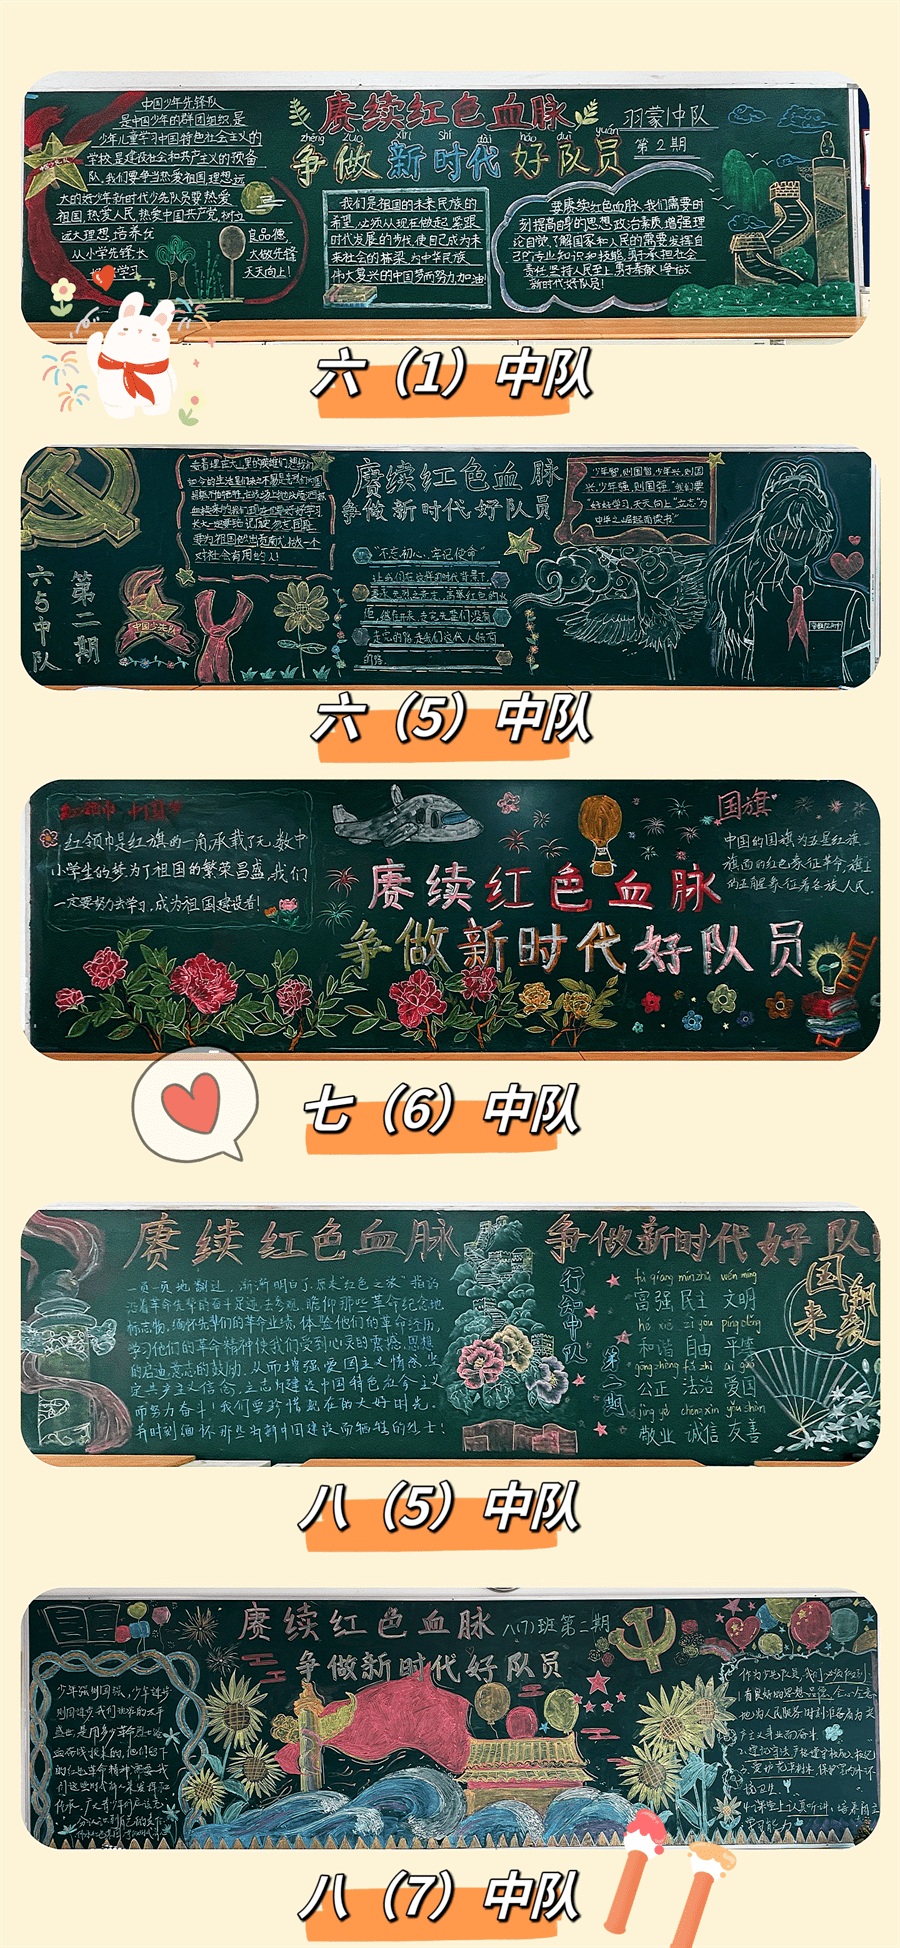 赓续红色血脉
羽蒙中队
第2期
zhēng zuò xīn shí dài hǎo duì yuán
争做新时代好队员
中国少年先锋队
是中国少年的群团组织是
少年儿童学习中国特色社会主义的
学校是建设社会和共产主义的预备
队,我们要争当热爱祖国理想远
大的好少年新时代少先队员要热爱
祖国,热爱人民,热爱中国共产党树立
远大理想培养优
良品德,
从小学先锋,长
大做先锋
学习
天天向上!
我们是祖国的未来民族的
希望,必须从现在做起,紧跟
时代发展的步伐,使自己成为未
来社会的栋梁,为中华民族
伟大复兴的中国梦而努力加油!
要赓续红色血脉,我们需要时
刻提高自身的思想政治素质,增强理
论自觉,了解国家和人民的需要发挥自
己的专业知识和技能,勇于承担社会
责任,坚持人民至上,勇于奉献,争做
新时代好队员!
六（1）中队
赓续红色血脉
争做新时代好队员
第二期
六5中队
中国少先队
对社会有用的人!
"不忘初心,牢记使命"
让我们在这样的时代背景下,
走完的路是我们这代人所有
的路
少年智,则国智,少年兴,则国
兴,少年强,则国强,我们要
好好学习,天天向上,立志"为
中华之崛起而读书"
六（5）中队
红领巾 中国梦
红领巾是红旗的一角,承载了无数中
小学生的梦为了祖国的繁荣昌盛,我们
一定要努力去学习,成为祖国建设者!
国旗
中国的国旗为五星红旗
旗面的红色象征革命,旗上
的五颗星象征着各族人民.
赓续红色血脉
争做新时代好队员
七（6）中队
赓续红色血脉
争做新时代好队
一页一页地翻过,渐渐明白了,原来"红色之旅"指的
沿着革命先辈的奋斗足迹,去参观、瞻仰那些革命纪念地
标志物,缅怀先辈们的革命业绩,体验他们的革命经历,
学习他们的革命精神使我们受到心灵的震撼,思想
的启迪意志的鼓励,从而增强爱国主义情感,坚
定共产主义信念,立志为建设中国特色社会主义
而努力奋斗!我们要珍惜现在的大好时光,
并时刻缅怀那些为新中国建设而牺牲的烈士!
行知中队
第二期
fù qiáng mín zhǔ wén míng
富强 民主 文明
hé xié zì yóu píng děng
和谐 自由 平等
gōng zhèng fǎ zhì ài guó
公正 法治 爱国
jìng yè chéng xìn yǒu shàn
敬业 诚信 友善
国潮来袭
八（5）中队
赓续红色血脉
八(7)班第二期
争做新时代好队员
少年强则国强,少年进步
则国进步,我们现在的太平
盛世,是用多少革命烈士的
血奋战换来的,他们留下
的红色革命精神需要我
作为少先队员,我们必须做到:
1.有良好的思想品德,全心全意
地为人民服务时刻准备着为共
产主义事业而奋斗.
境卫生.
4.课堂上认真听讲,培养自主
学习能力
八（7）中队